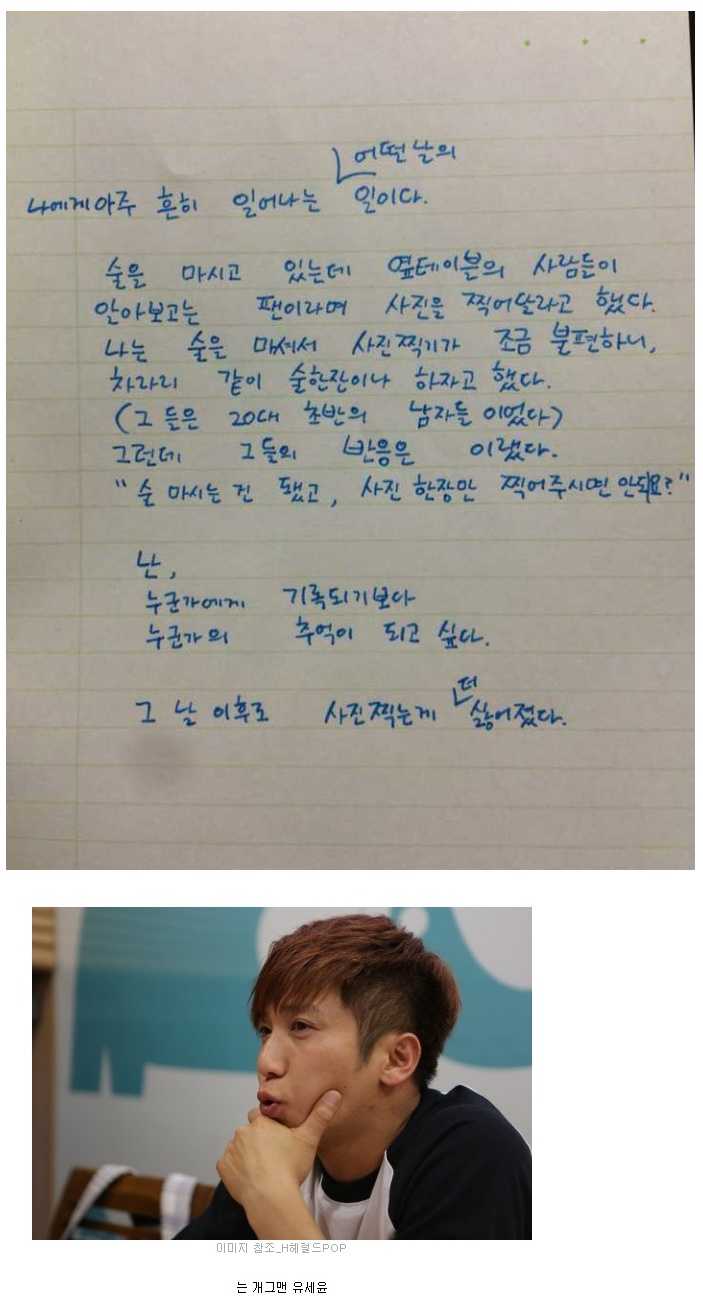 어떤 날의
나에게 아주 흔히 일어나는 일이다.
술을 마시고 있는데 옆테이블의 사람들이
알아보고는 팬이라며 사진을 찍어달라고 했다.
나는 술을 마셔서 사진찍기가 조금 불편하니,
차라리 같이 술한잔이나 하자고 했다.
(그 들은 20대 초반의 남자들 이었다)
그런데 그들의 반응은 이랬다.
"술 마시는 건 됐고, 사진 한장만 찍어주시면 안되요?"
난,
누군가에게 기록되기보다
누군가의 추억이 되고 싶다.
더
그 날 이후로 사진찍는게 싫어졌다.
이미지 참조_H헤럴드POP
는 개그맨 유세윤